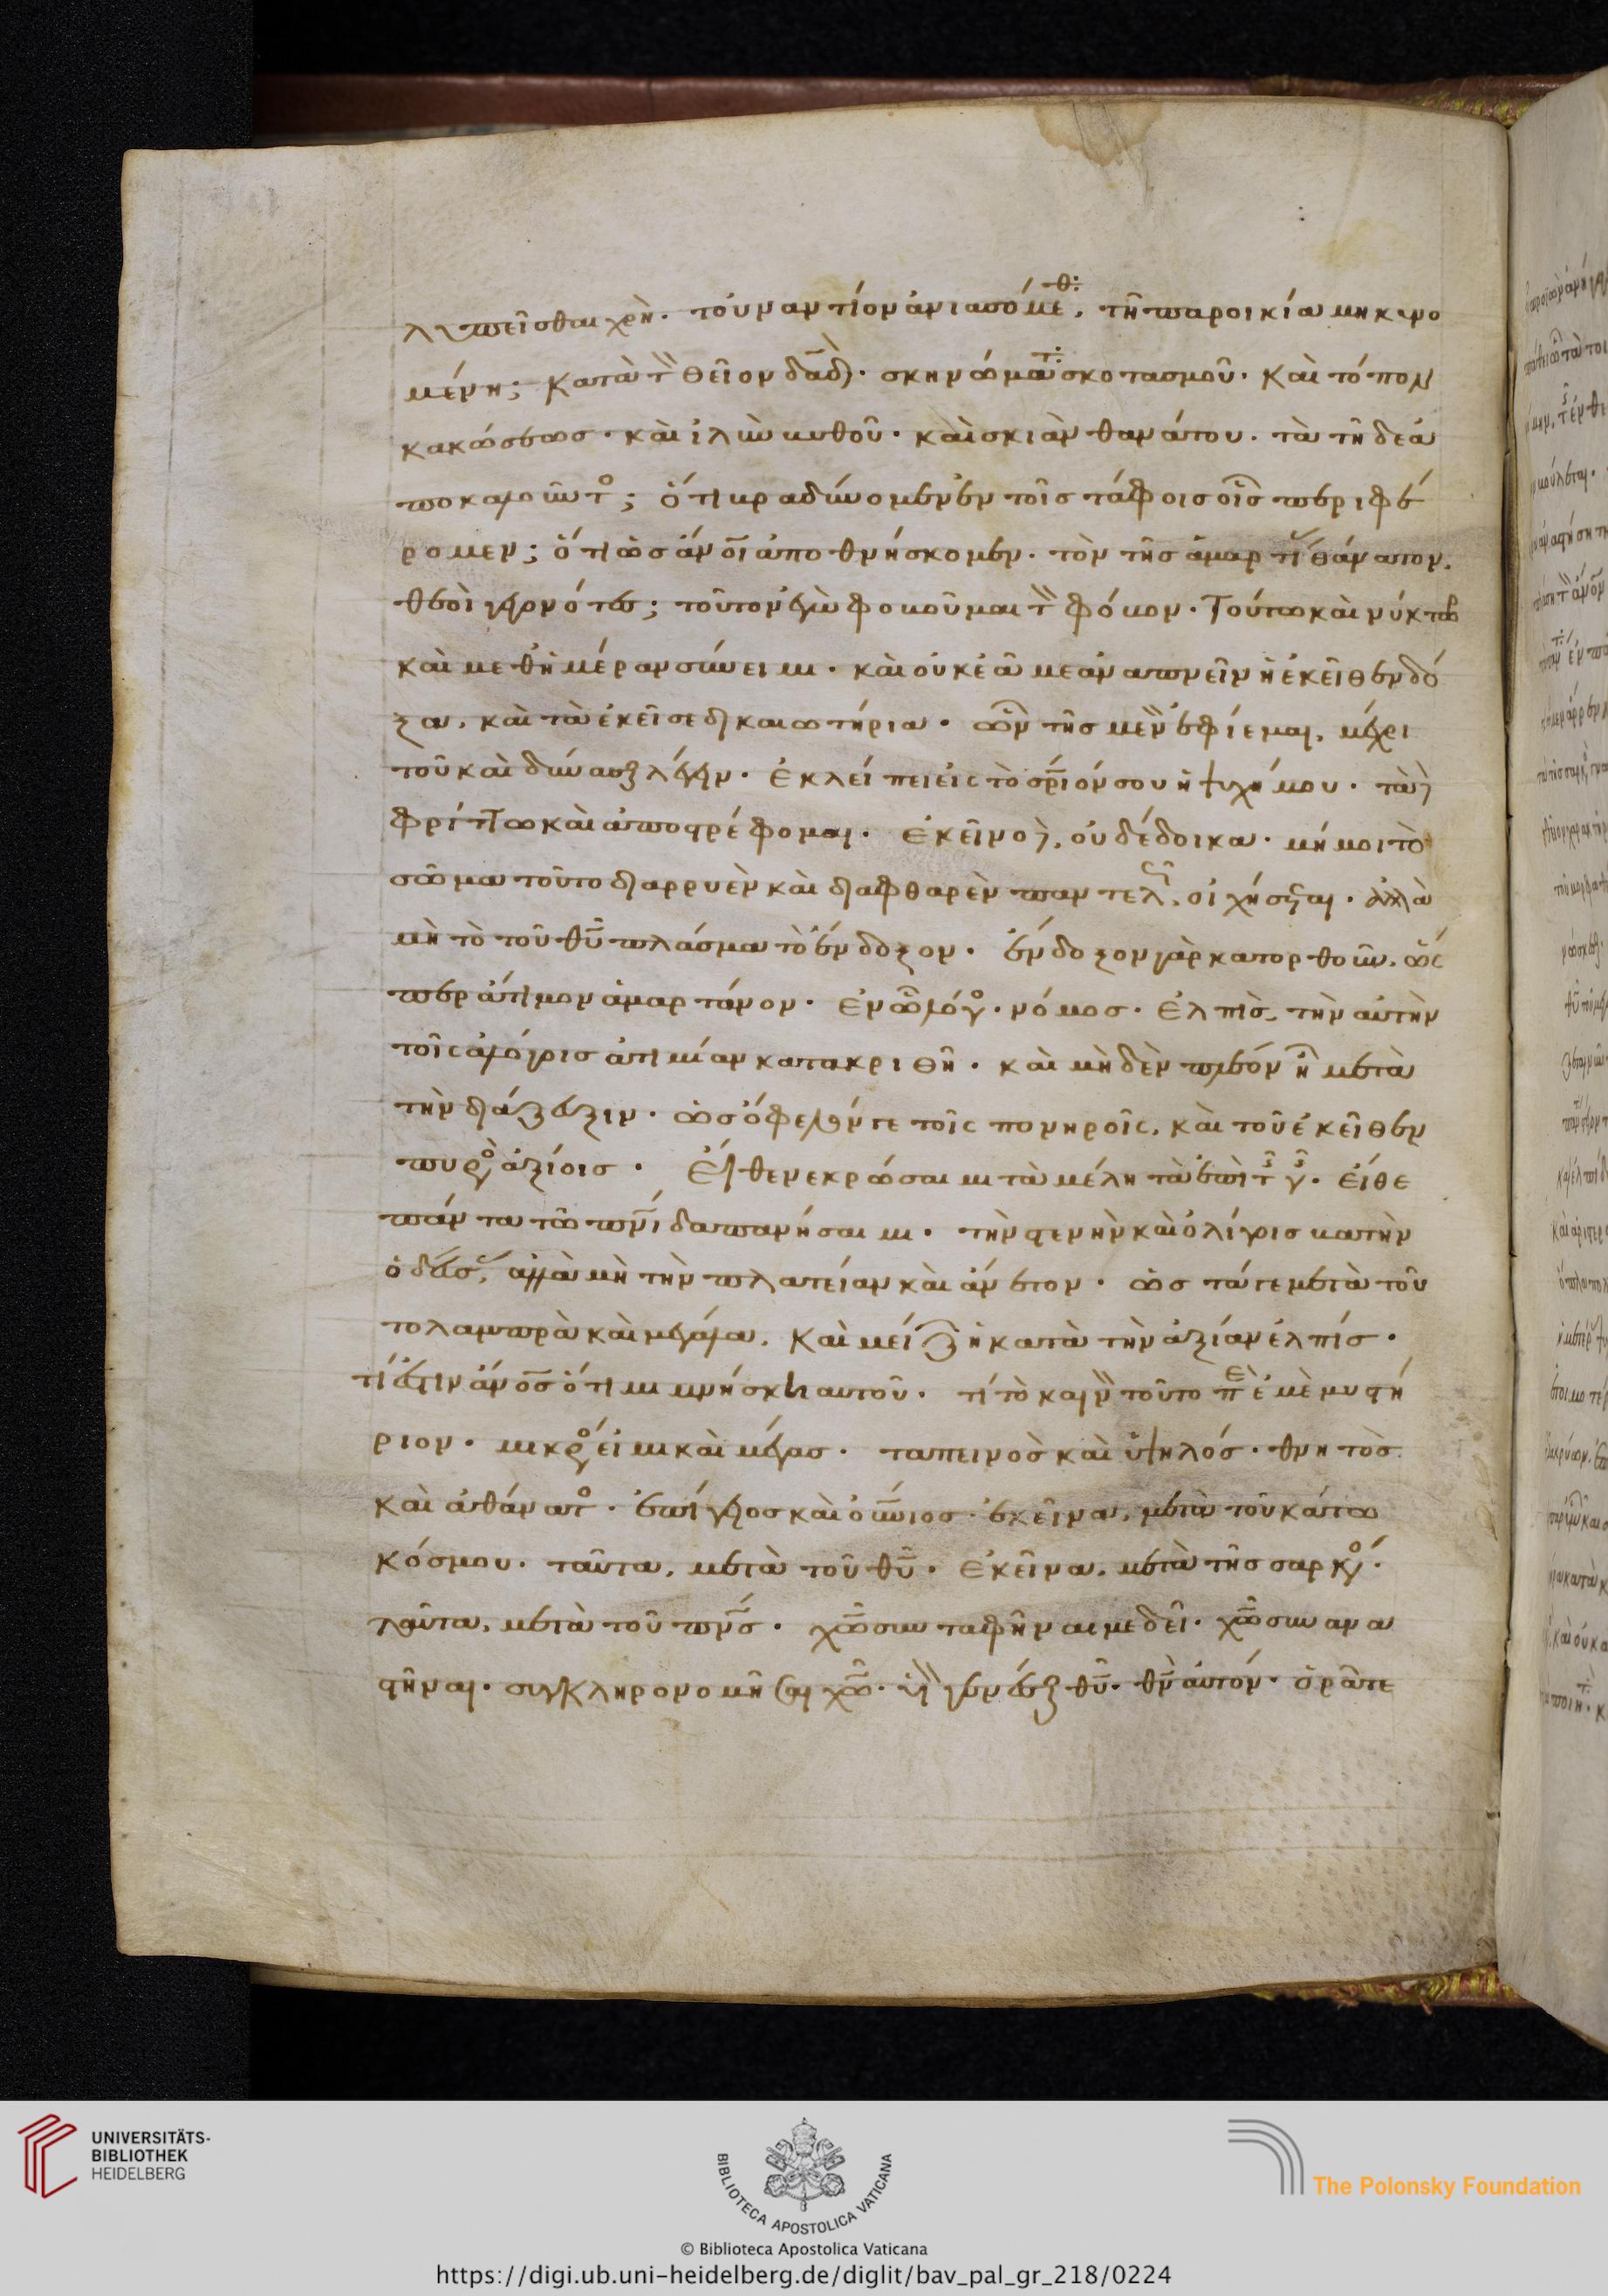 λυπεῖσθαι χρὴ. τοὐναντίον ἀνιασόμεθ· τῆ παροικία μηκυνο
μένη; κατὰ τὸν θεῖον δᾱδ· σκηνώματ σκοτασμοῦ. καὶ τόπον
κακώσεως. καὶ ἰλὺν βυθοῦ. καὶ σκιὰν θανάτου. τὰ τῆδε ἀ
ποκαλοῦντος; ὅτι βραδύνομεν ἐν τοῖς τάφοις οἷς περιφέ
ρομεν; ὅτι ὡς ἄνοι ἀποθνήσκομεν. τὸν τῆς ἁμαρτίας θάνατον.
θεοὶ γεγονότες; τοῦτον ἐγὼ φοβοῦμαι τὸν φόβον. Τούτω καὶ νύκτωρ
καὶ μεθἡμέραν σύνειμι. καὶ οὐκ ἐᾶ με ἀναπνεῖν ἡ ἐκεῖθεν δό
ξα. καὶ τὰ ἐκεῖσε δικαιωτήρια. ὧν τῆς μὲν ἐφίεμαι, μέχρι
τοῦ καὶ δύνασθαι λέγειν. ἐκλείπει εἰς τὸ σρ̄ιόν σου ἡ ψυχή μου. τὰ δὲ
φρίττω καὶ ἀποστρέφομαι. ἐκεῖνο δὲ, οὐ δέδοικα. μή μοι τὸ
σῶμα τοῦτο διαρρυὲν καὶ διαφθαρὲν παντελῶς, οἰχήσεται. ἀλλὰ
μὴ τὸ τοῦ θῡ πλάσμα τὸ ἔνδοξον. ἔνδοξον γὰρ κατορθοῦν. ὥς
περ ἄτιμον ἁμαρτάνον. ἐν ὧ λόγος. νόμος. ἐλπὶς, τὴν αὐτὴν
τοῖς ἀλόγοις ἀτιμίαν κατακριθῆ. καὶ μηδὲν πλέον ἦ μετὰ
τὴν διάζευξιν. ὡς ὄφελόν γε τοῖς πονηροῖς. καὶ τοῦ ἐκεῖθεν
πυρὸς ἀξίοις. Εἴθε νεκρώσαιμι τὰ μέλη τὰ ἐπὶ τῆς γῆς. εἴθε
πάντα τῶ πνῑ δαπανήσαιμι. τὴν στενὴν καὶ ὀλίγοις βατὴν
ὁδεύσας, ἀλλὰ μὴ τὴν πλατείαν καὶ ἄνετον. ὡς τάγε μετὰ τοῦ
το λαμπρὰ καὶ μεγάλα. καὶ μείζων ἢ κατὰ τὴν ἀξίαν ἐλπίς.
τί ἐστιν ἄνος ὅτι μιμνήσκη αυτοῦ. τί τὸ καινὸν τοῦτο περὶ ἐμὲ μυστή
ριον. μικρός εἰμι καὶ μέγας. ταπεινὸς καὶ ὑψηλός. θνητὸς
καὶ ἀθάνατος. ἐπίγειος καὶ οὐνιος. ἐκεῖνα, μετὰ τοῦ κάτω
κόσμου. ταῦτα, μετὰ τοῦ θῡ. ἐκεῖνα, μετὰ τῆς σαρκός.
ταῦτα, μετὰ τοῦ πνς. χῶ συνταφῆναι με δεῖ. χῶ συνανα
στῆναι. συγκληρονομῆσαι χῶ. ὑιὸν γενέσθαι θῡ. θν αὐτόν. ὁρᾶτε
UNIVERSITÄTS-
BIBLIOTHEK
HEIDELBERG
BIBLIOTECA APOSTOLICA VATICANA
The Polonsky Foundation
© Biblioteca Apostolica Vaticana
https://digi.ub.uni-heidelberg.de/diglit/bav_pal_gr_218/0224